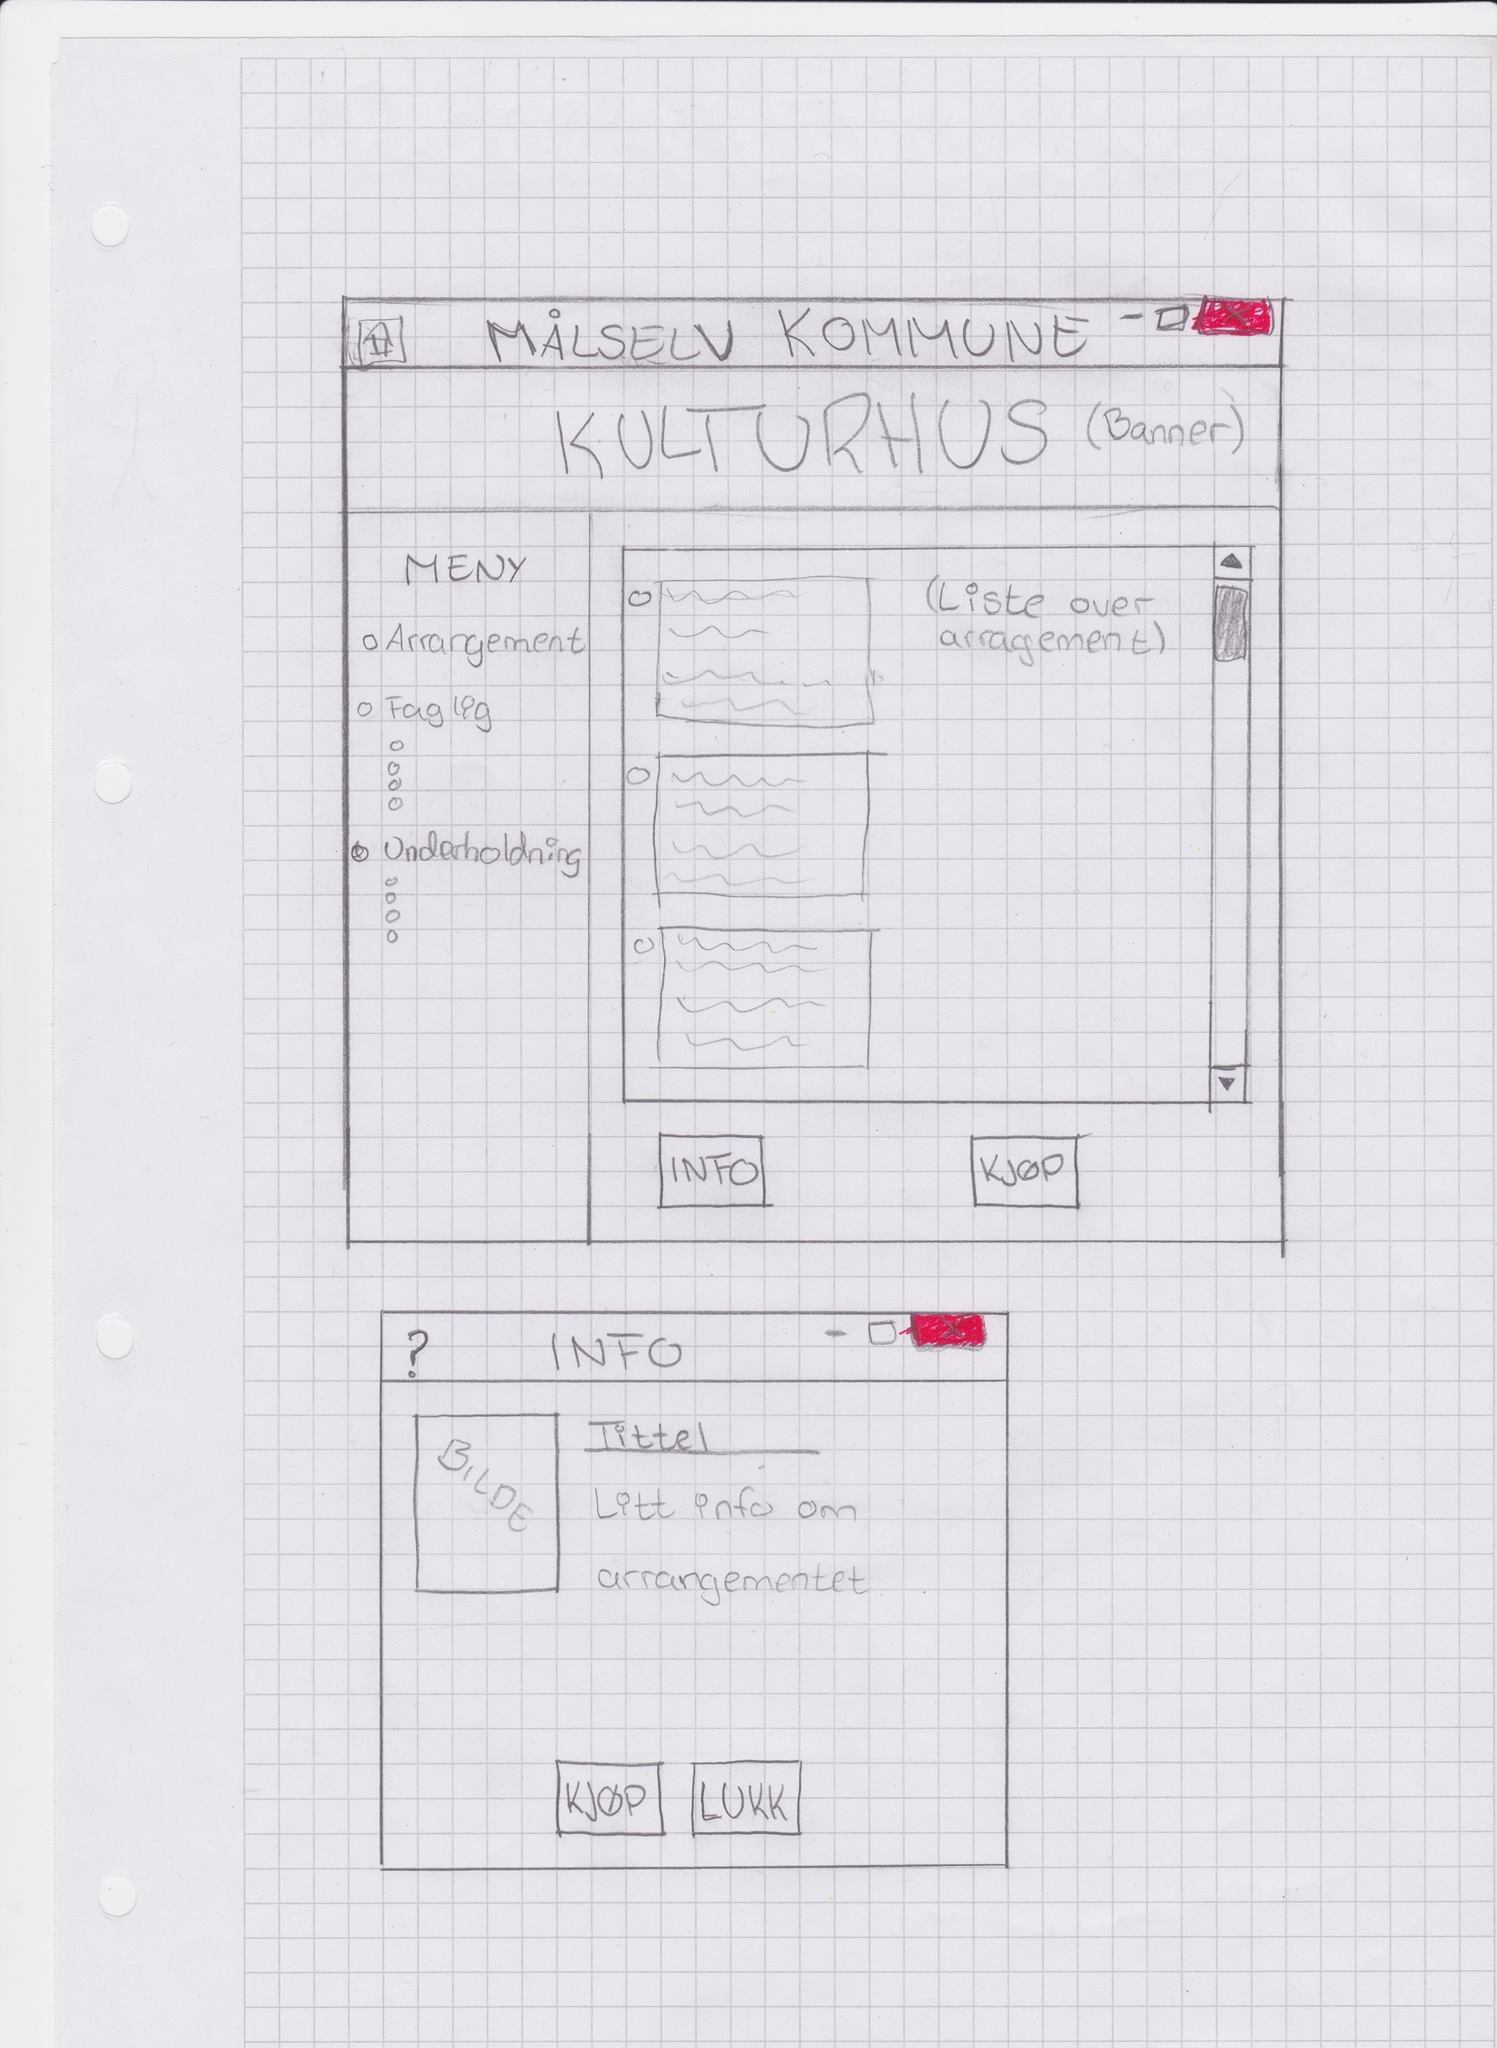 MÅLSELV KOMMUNE - X
KULTURHUS (Banner)
MENY
Arrangement
Faglig
Underholdning
(Liste over
arragement)
INFO
KJØP
? INFO - X
BILDE
Tittel
Litt info om
arrangementet
KJØP LUKK